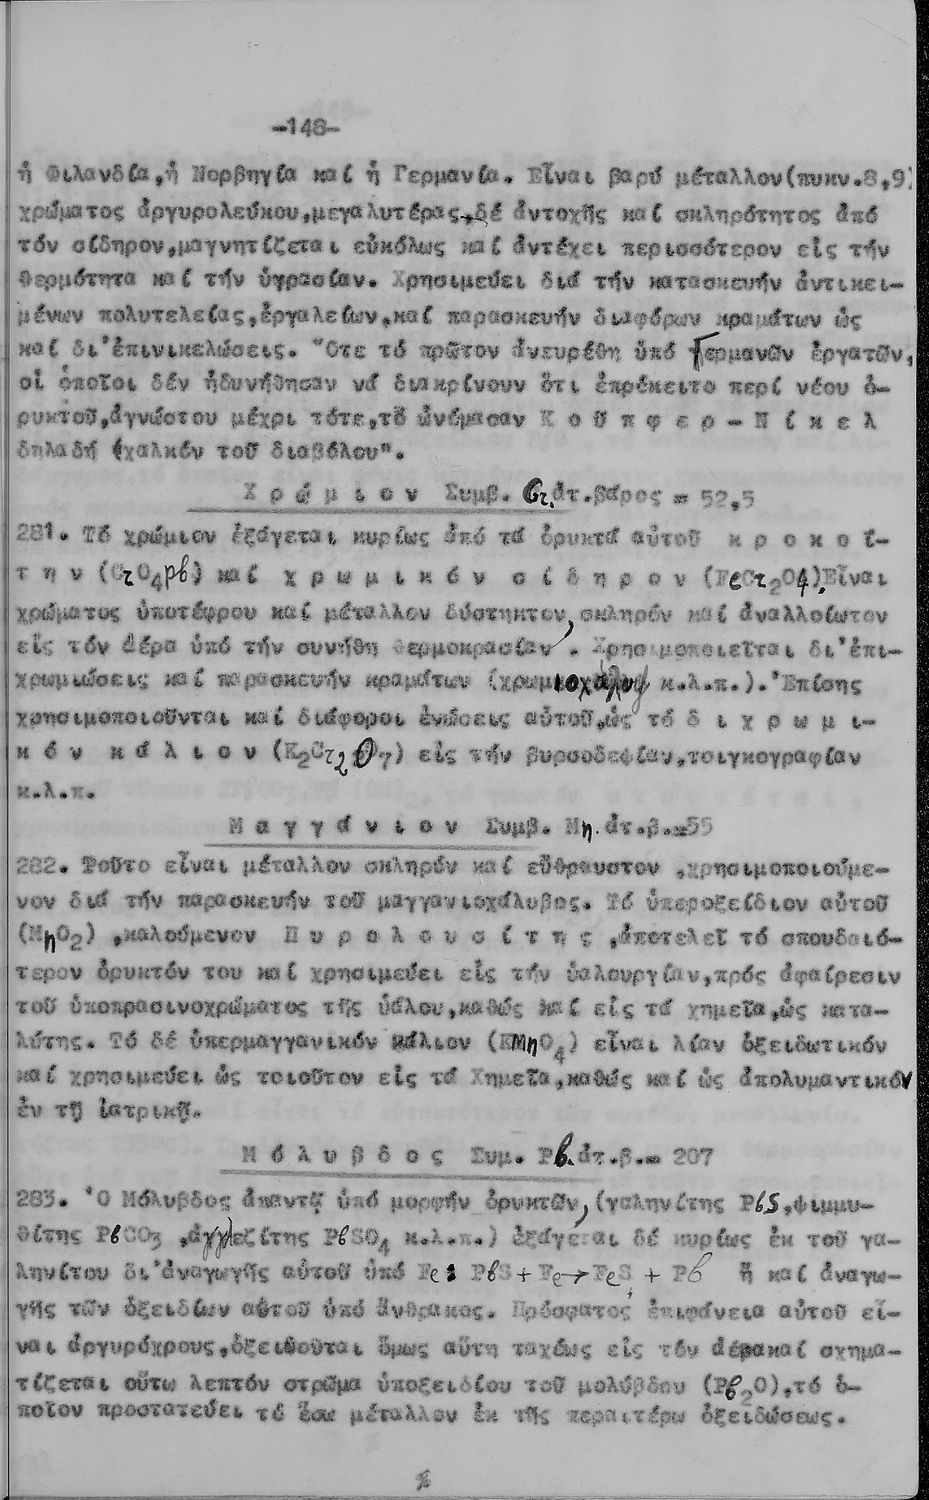 -148-
ἡ Φιλανδία,ἡ Νορβηγία καί ἡ Γερμανία. Εἶναι βαρύ μέταλλον(πυκν.8,9)
χρώματος ἀργυρολεύκου,μεγαλυτέρας δέ ἀντοχῆς καί σκληρότητος ἀπό
τόν σίδηρον,μαγνητίζεται εὐκόλως καί ἀντέχει περισσότερον εἰς τήν
θερμότητα καί τήν ὑγρασίαν. Χρησιμεύει διά τήν κατασκευήν ἀντικει-
μένων πολυτελείας,ἐργαλείων,καί παρασκευήν διαφόρων κραμάτων ὡς
καί δι'ἐπινικελώσεις. "Οτε τό πρῶτον ἀνευρέθη ὑπό Γερμανῶν ἐργατῶν,
οἱ ὁποῖοι δέν ἠδυνήθησαν νά διακρίνουν ὅτι ἐπρόκειτο περί νέου ὀ-
ρυκτοῦ,ἀγνώστου μέχρι τότε,τό ὠνόμασαν Κ ο ῦ π φ ε ρ - Ν ί κ ε λ
δηλαδή (χαλκόν τοῦ διαβόλου".
Χ ρ ώ μ ι ο ν Συμβ. Cr.ἀτ.βάρος = 52,5
281. Τό χρώμιον ἐξάγεται κυρίως ἀπό τά ὀρυκτά αὐτοῦ κ ρ ο κ ο ΐ-
τ η ν (CrO4Pb) καί χ ρ ω μ ι κ ό ν σ ί δ η ρ ο ν (FeCr2O4).Εἶναι
χρώματος ὑποτέφρου καί μέταλλον δύστηκτον, σκληρόν καί ἀναλλοίωτον
εἰς τόν ἀέρα ὑπό τήν συνήθη θερμοκρασίαν . Χρησιμοποιεῖται δι'ἐπι-
χρωμιώσεις καί παρασκευήν κραμάτων (χρωμιοχάλυψ κ.λ.π.).'Επίσης
χρησιμοποιοῦνται καί διάφοροι ἑνώσεις αὐτοῦ,ὡς τό δ ι χ ρ ω μ ι-
κ ό ν κ ά λ ι ο ν (K2Cr2O7) εἰς τήν βυρσοδεψίαν,τσιγκογραφίαν
κ.λ.π.
Μ α γ γ ά ν ι ο ν Συμβ. Mn.ἀτ.β.=55
282. Τοῦτο εἶναι μέταλλον σκληρόν καί εὔθραυστον ,χρησιμοποιούμε-
νον διά τήν παρασκευήν τοῦ μαγγανιοχάλυβος. Τό ὑπεροξείδιον αὐτοῦ
(MnO2) ,καλούμενον Π υ ρ ο λ ο υ σ ί τ η ς ,ἀποτελεῖ τό σπουδαιό-
τερον ὀρυκτόν του καί χρησιμεύει εἰς τήν ὑαλουργίαν,πρός ἀφαίρεσιν
τοῦ ὑποπρασινοχρώματος τῆς ὑάλου,καθώς καί εἰς τά χημεῖα,ὡς κατα-
λύτης. Τό δέ ὑπερμαγγανικόν κάλιον (KMnO4) εἶναι λίαν ὀξειδωτικόν
καί χρησιμεύει ὡς τοιοῦτον εἰς τά Χημεῖα,καθώς καί ὡς ἀπολυμαντικόν
ἐν τῇ ἰατρικῇ.
Μ ό λ υ β δ ο ς Συμ. Pb.ἀτ.β.= 207
283. 'Ο Μόλυβδος ἀπαντᾷ ὑπό μορφήν ὀρυκτῶν,(γαληνίτης PbS,ψιμμυ-
θίτης PbCO3 ,ἀγγλεζίτης PbSO4 κ.λ.π.) ἐξάγεται δέ κυρίως ἐκ τοῦ γα-
ληνίτου δι'ἀναγωγῆς αὐτοῦ ὑπό Fe: PbS + Fe → FeS + Pb ἤ καί ἀναγω-
γῆς τῶν ὀξειδίων αὐτοῦ ὑπό ἄνθρακος. Πρόσφατος ἐπιφάνεια αὐτοῦ εἶ-
ναι ἀργυρόχρους,ὀξειδοῦται ὅμως αὕτη ταχέως εἰς τόν ἀέρακαί σχημα-
τίζεται οὕτω λεπτόν στρῶμα ὑποξειδίου τοῦ μολύβδου (Pb2O),τό ὁ-
ποῖον προστατεύει τό ἔσω μέταλλον ἐκ τῆς περαιτέρω ὀξειδώσεως.